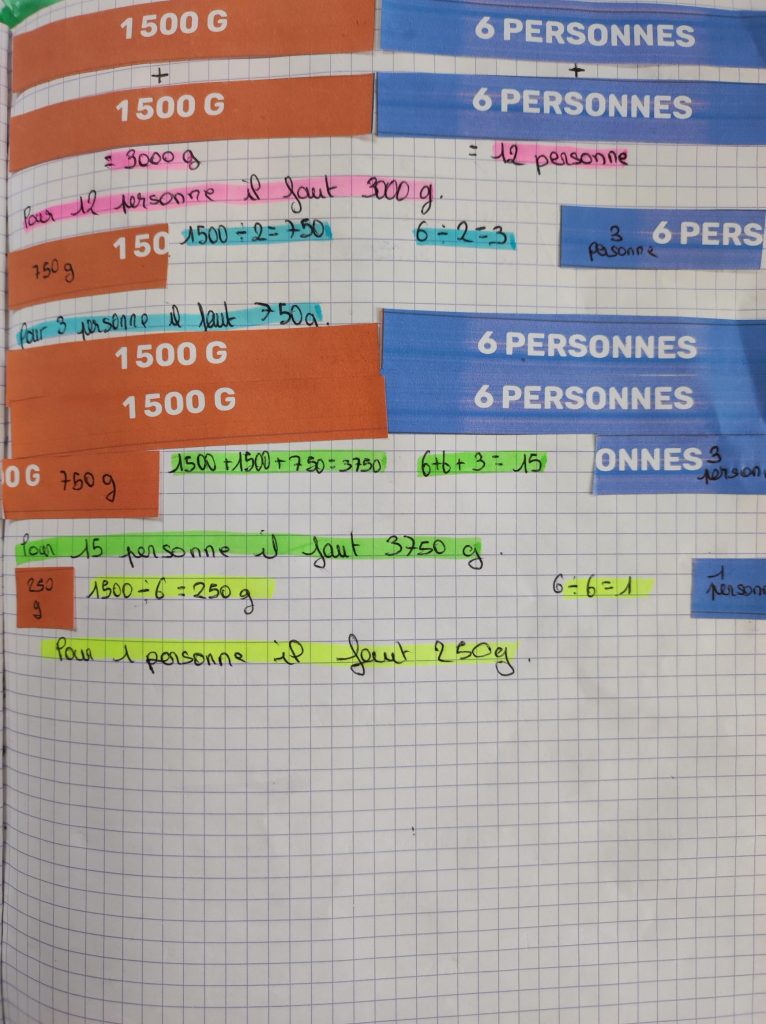 1500 G 6 PERSONNES
+ +
1500 G 6 PERSONNES
= 3000 g = 12 personne
Pour 12 personne il faut 3000 g.
150 1500 ÷ 2 = 750 6 ÷ 2 = 3 3 6 PERS
750 g personne
Pour 3 personne il faut 750g.
1500 G 6 PERSONNES
1500 G 6 PERSONNES
0 G 750 g 1500 + 1500 + 750 = 3750 6+6+3 = 15 ONNES 3
person
Pour 15 personne il faut 3750 g.
250 1500 ÷ 6 = 250 g 6 ÷ 6 = 1 1
g person
Pour 1 personne il faut 250g.